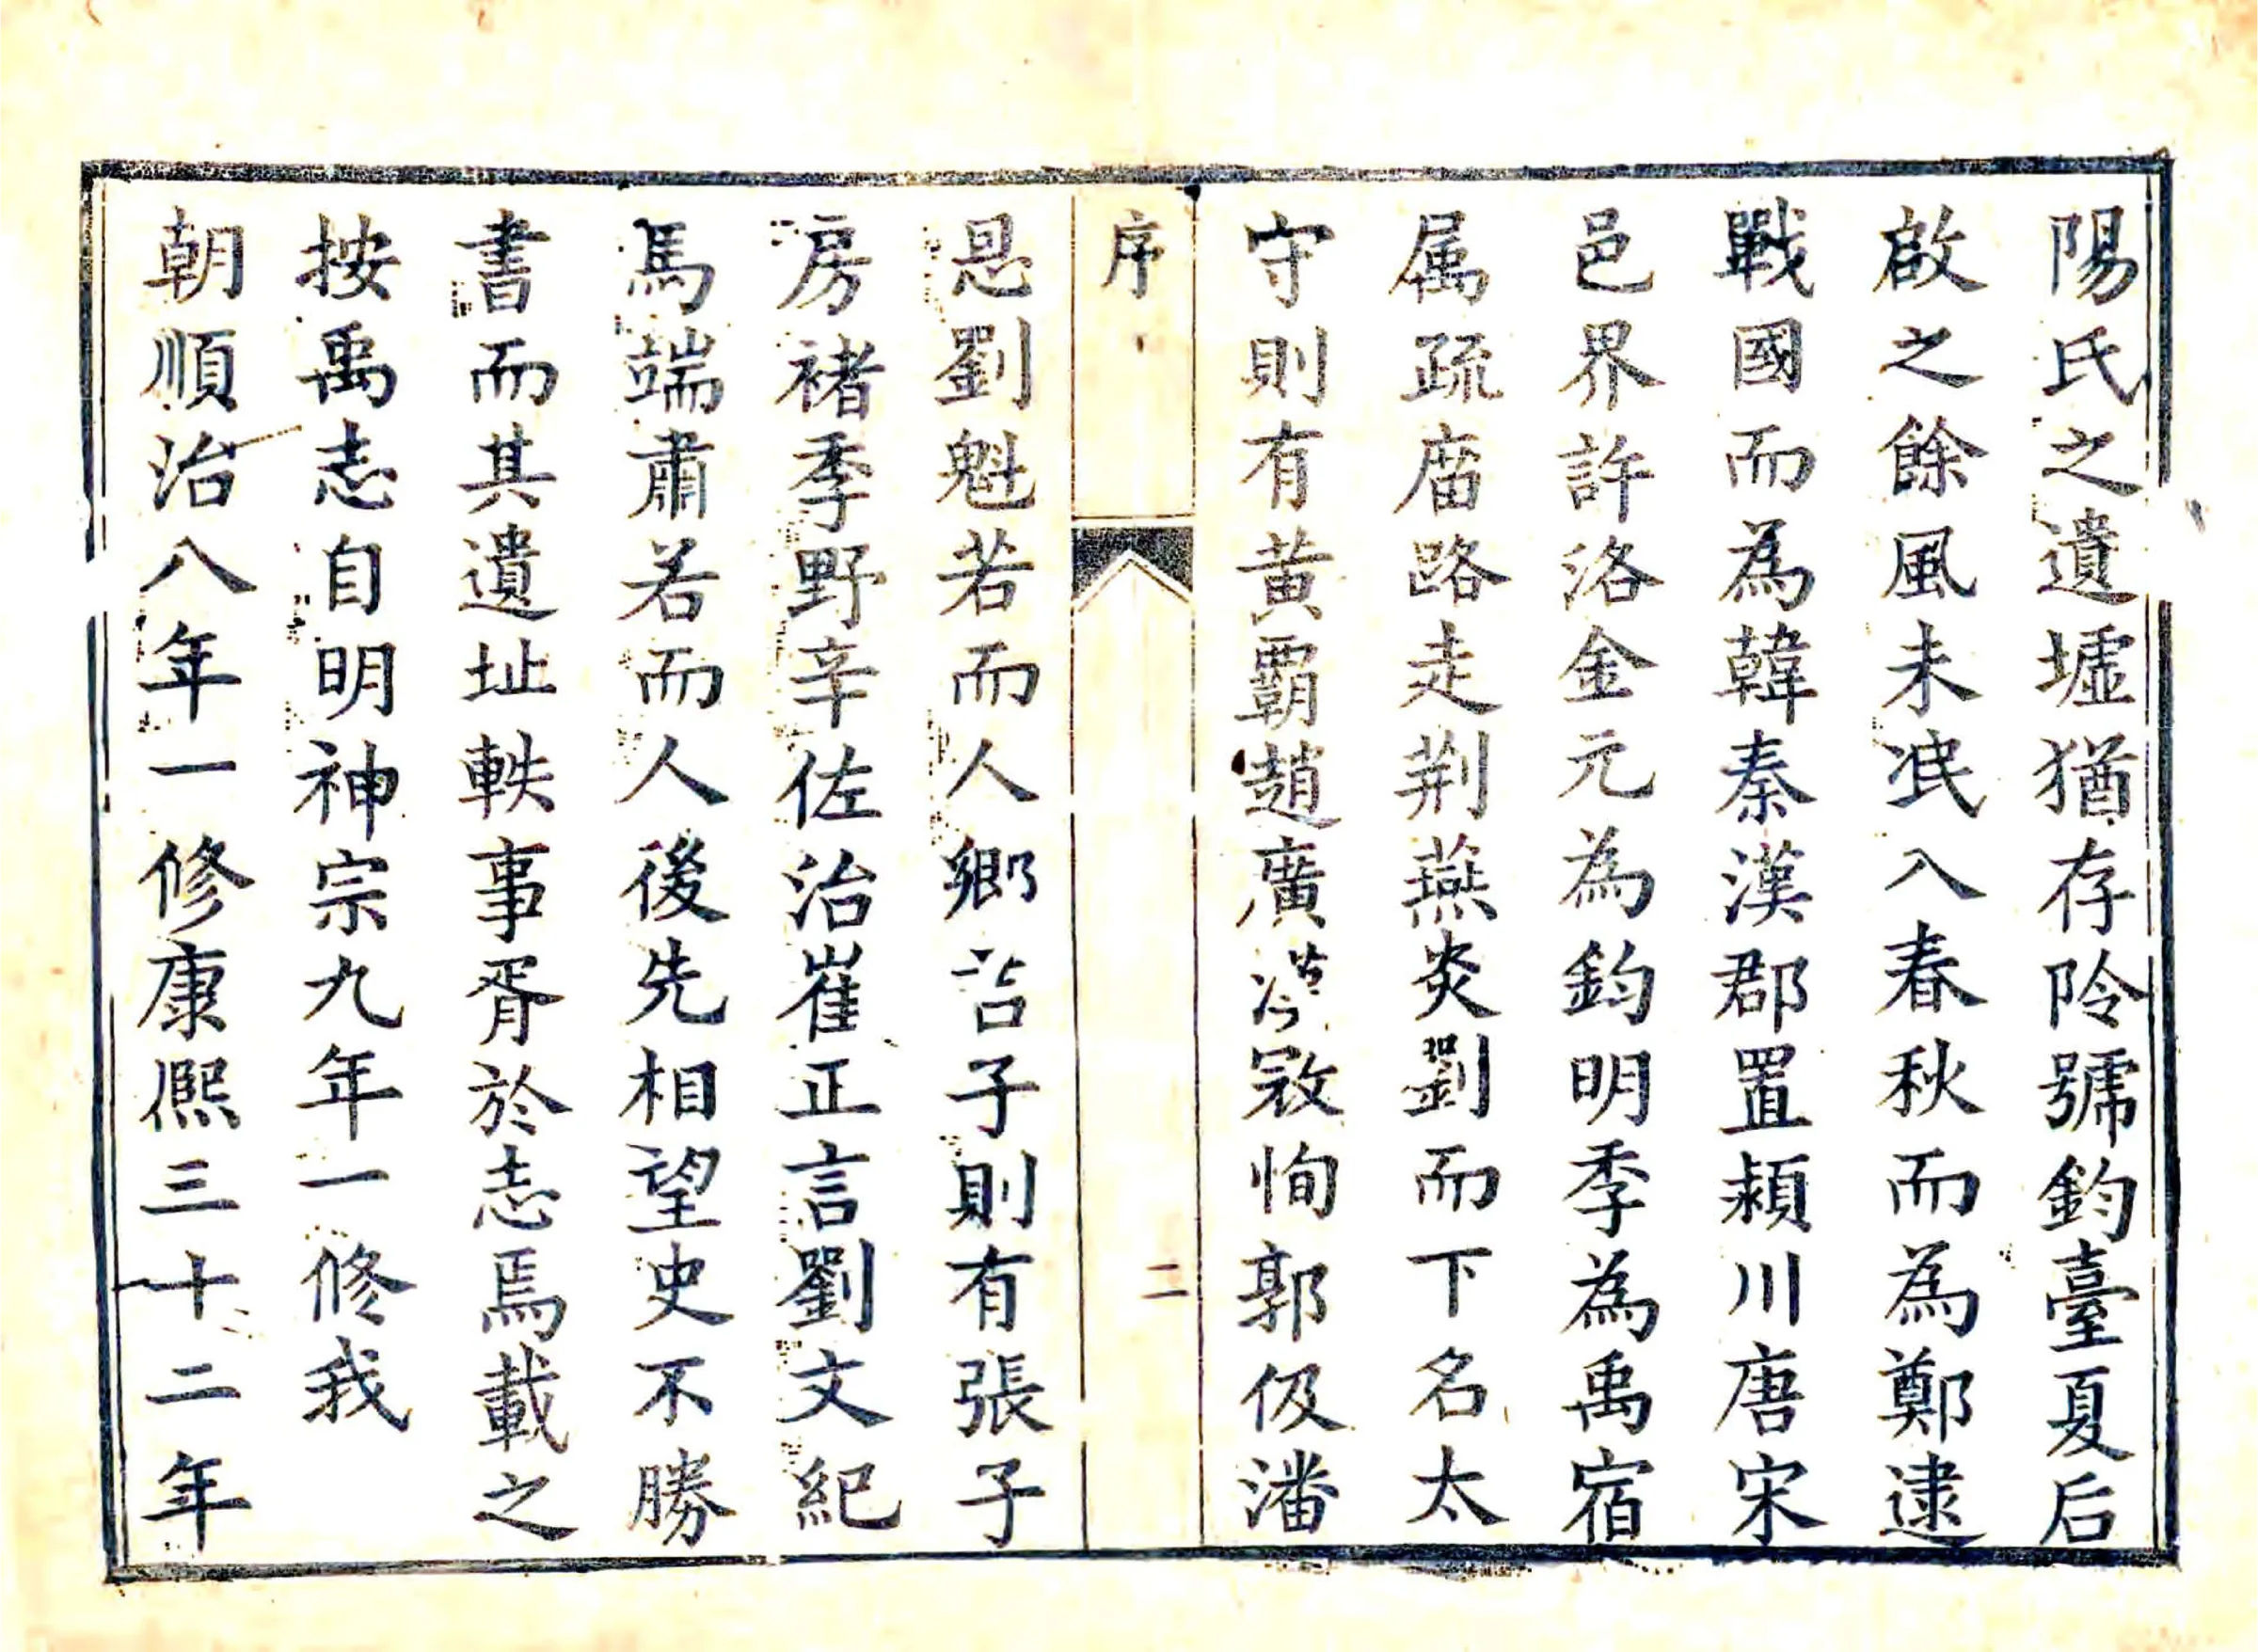 陽氏之遺墟猶存阾號鈞臺夏后
啟之餘風未泯入春秋而為鄭逮
戰國而為韓秦漢郡置潁川唐宋
邑界許洛金元為鈞明季為禹宿
属疏庿路走荆燕炎劉而下名太
守則有黄覇趙廣漢冦恂郭伋潘
序
二
恩劉魁若而人鄉子則有張子
房褚季野辛佐治崔正言劉文紀
馬端肅若而人後先相望史不勝
書而其遺址軼事胥於志焉載之
按禹志自明神宗九年一修我
朝順治八年一修康熙三十二年